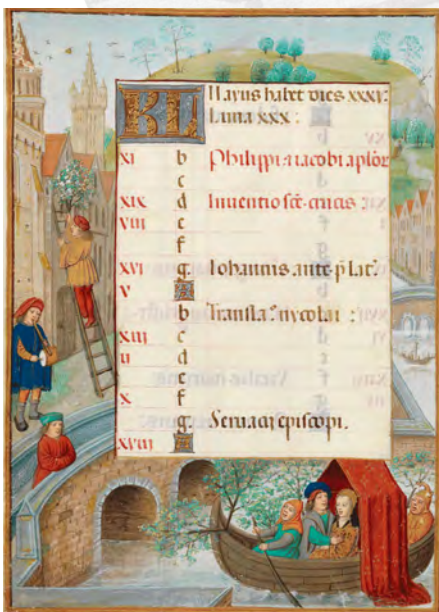 KL Mayus habet dies xxxi:
Luna xxx :
xi b Philippi ⁊ iacobi aplor
c
xix d Inuentio sce. crucis
viii e
f
xvi g Iohannis. ante. p lat.
v A
b Transla. nycolai :
xiii c
ii d
e
x f
g Seruacij episcopi.
xviii A